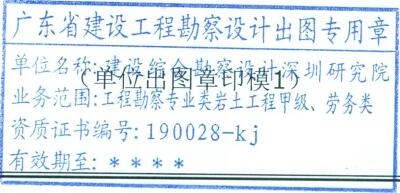 广东省建设工程勘察设计出图专用章
单位名称:建设综合勘察设计深圳研究院
(单位出图章印模1)
业务范围:工程勘察专业类岩土工程甲级、劳务类
资质证书编号:190028-kj
有效期至:****